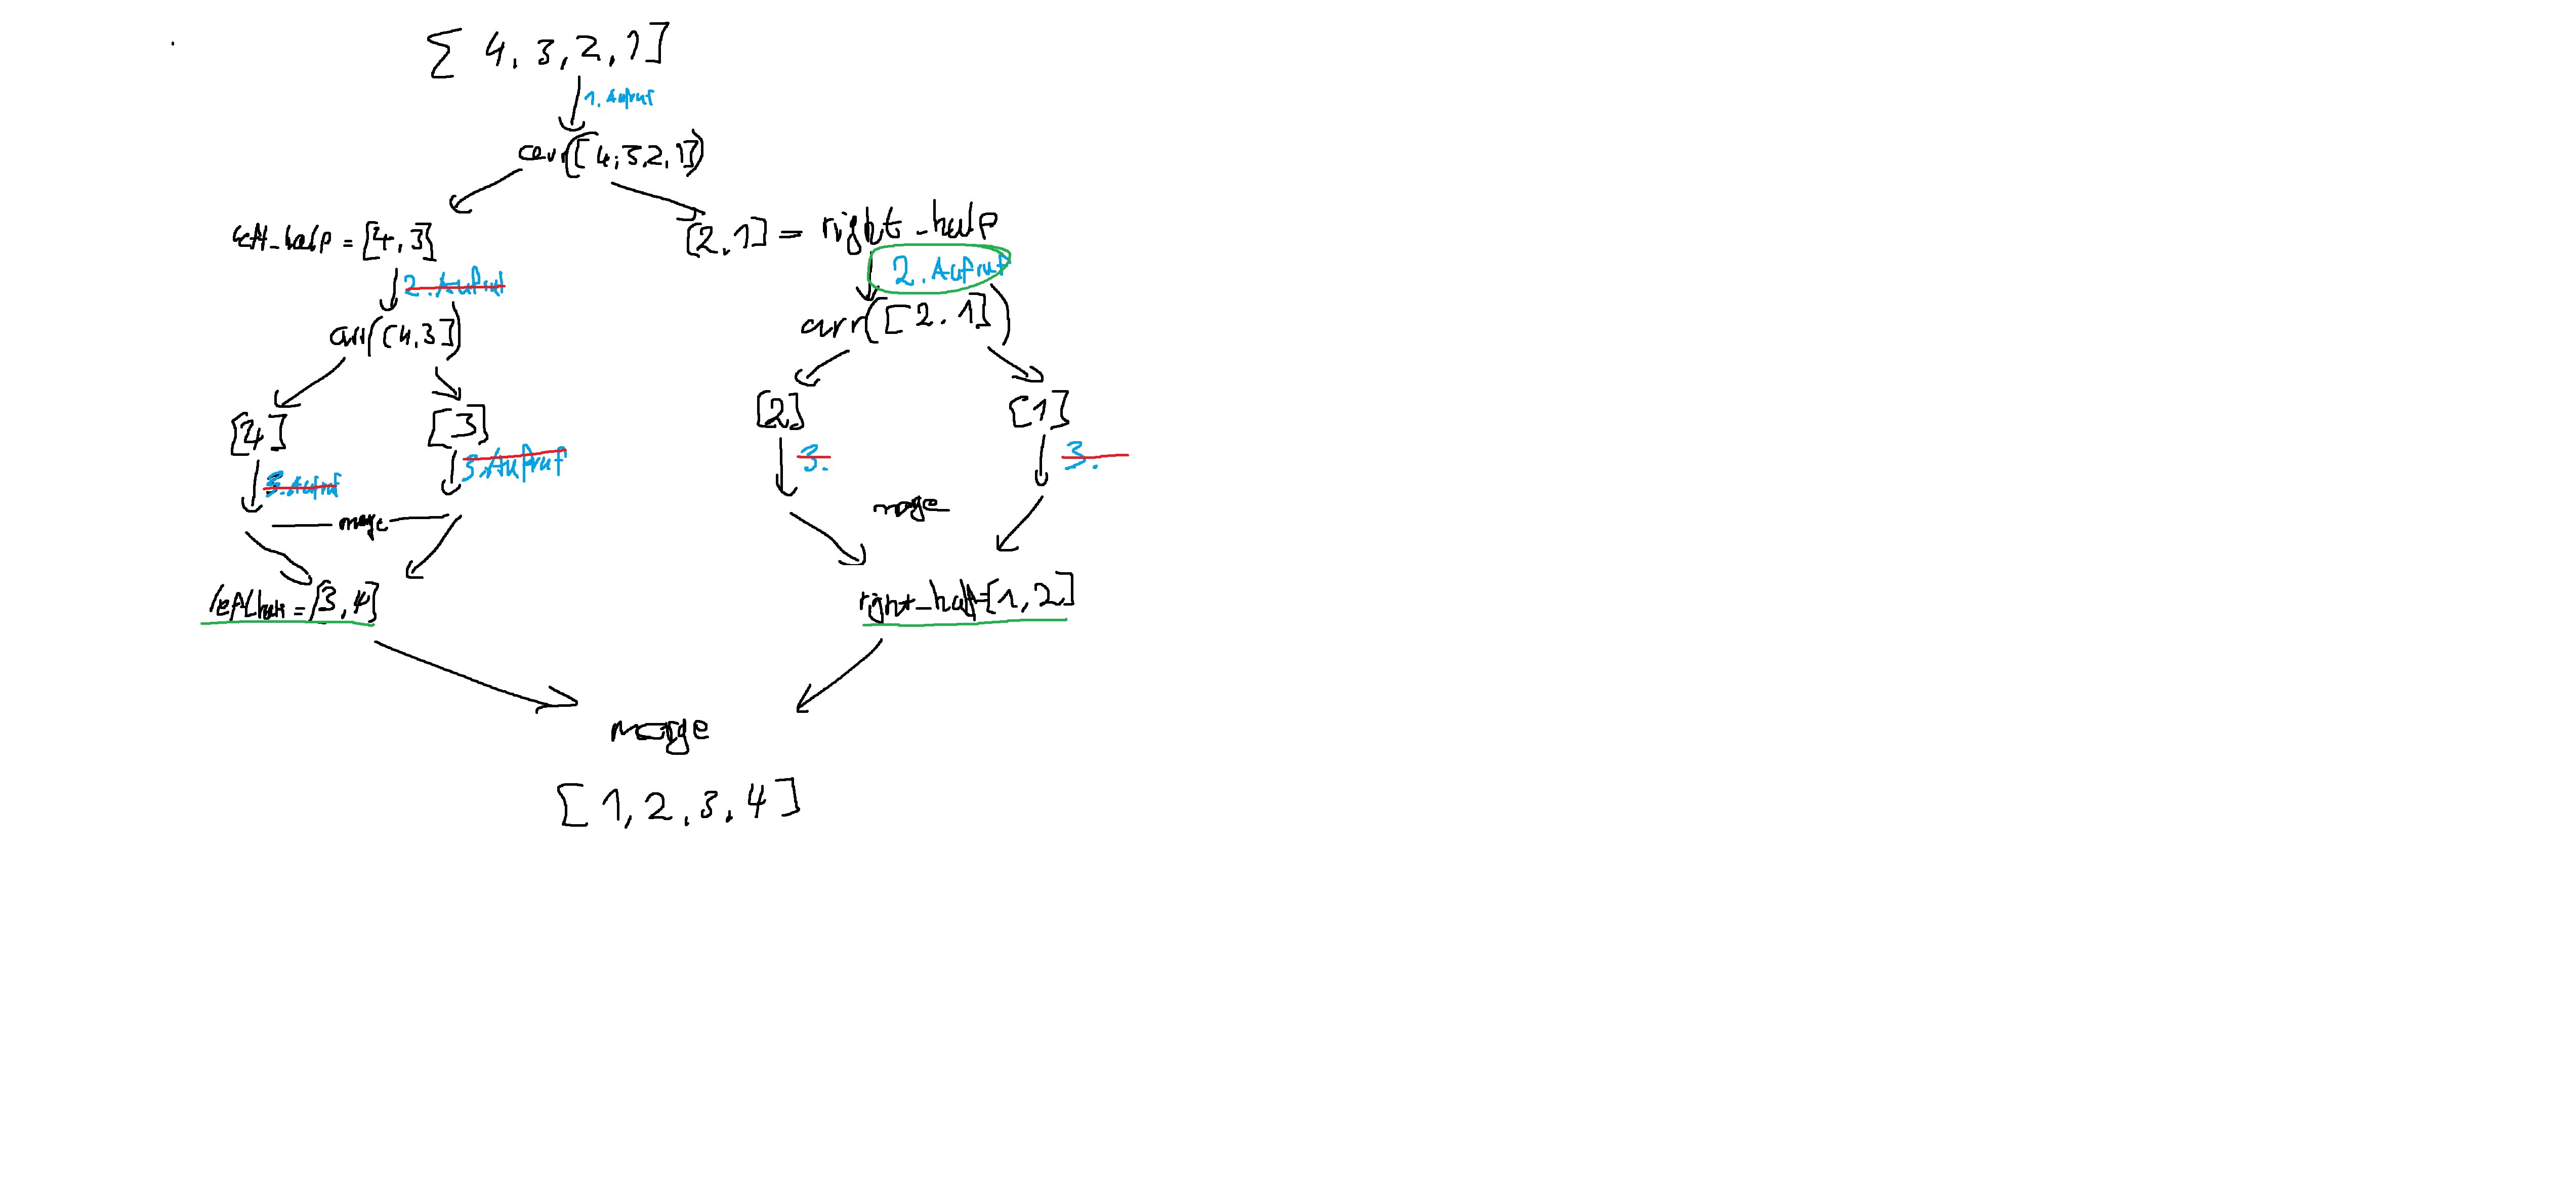 [ 4, 3, 2, 1]
1. Aufruf
arr([4,3,2,1])
left_half = [4,3]
[2,1] = right_half
2. Aufruf
2. Aufruf
arr([4,3])
arr([2.1])
[4]
[3]
[2]
[1]
3. Aufruf
3. Aufruf
3.
3.
merge
merge
left_half = [3,4]
right_half=[1,2]
merge
[1,2,3,4]